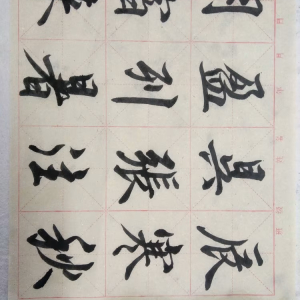 月盈昃辰
宿列張寒
來暑往秋